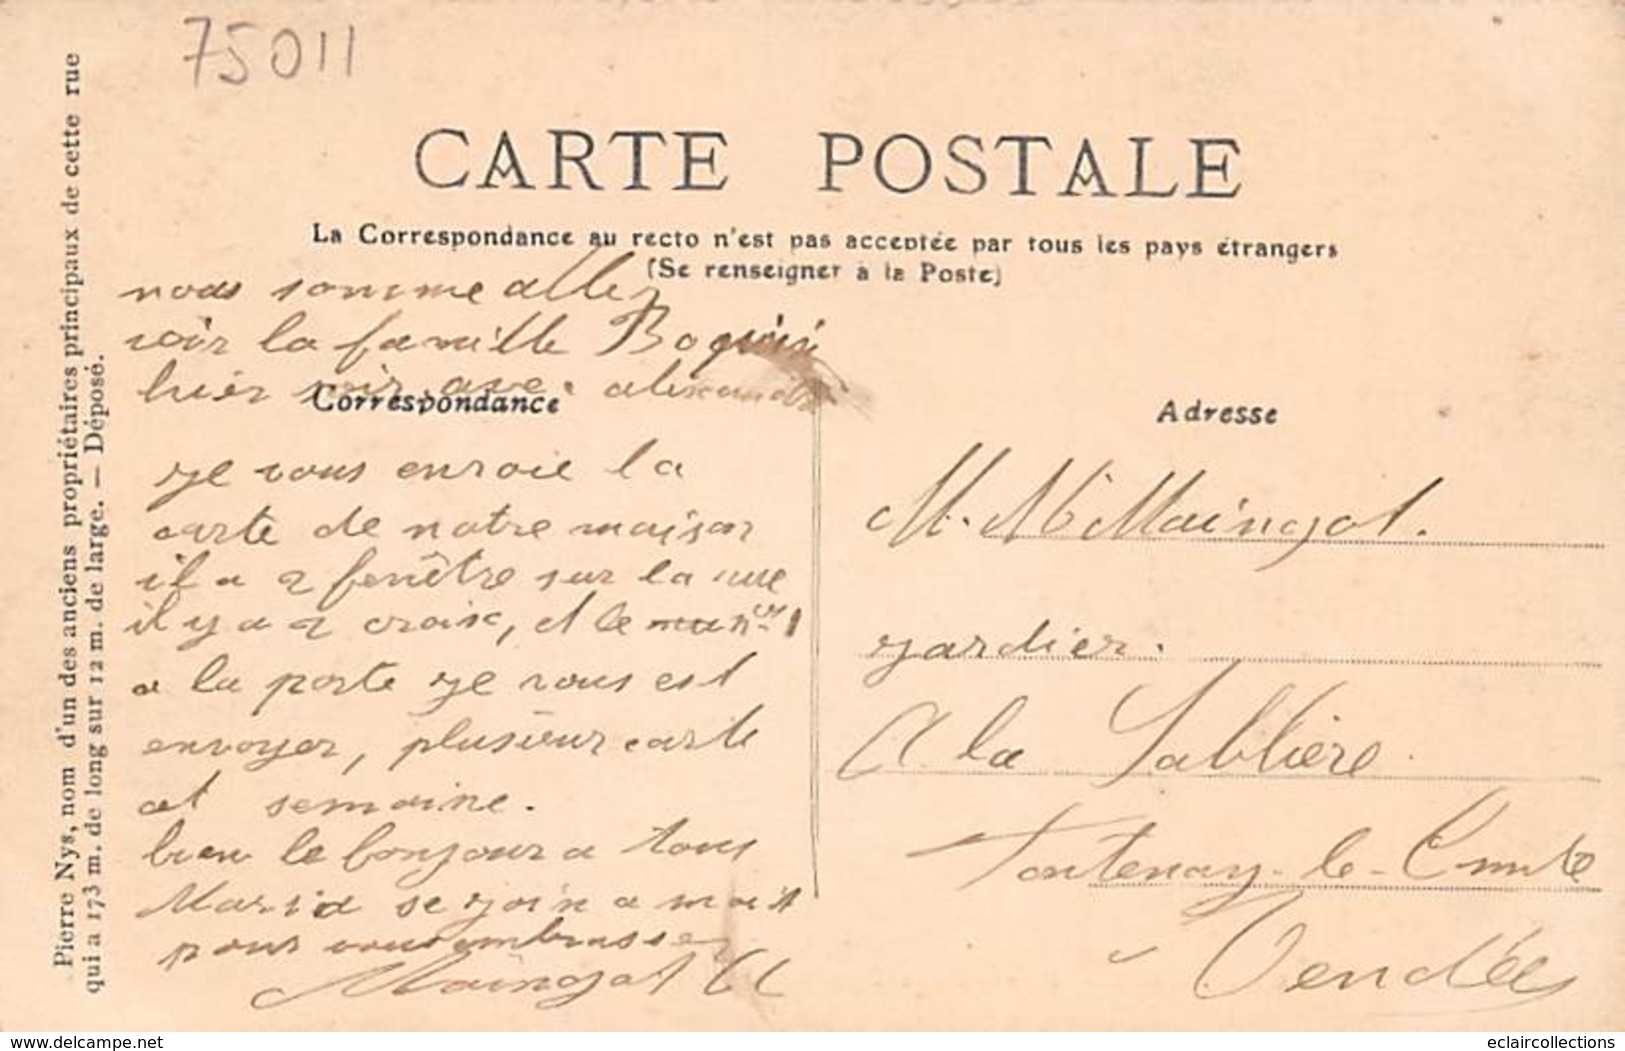 75011
CARTE POSTALE
La Correspondance au recto n'est pas acceptée par tous les pays étrangers
(Se renseigner à la Poste)
Pierre Nys, nom d'un des anciens propriétaires principaux de cette rue
qui a 173 m. de long sur 12 m. de large. — Déposé.
nous somme aller
voir la famille
hier soir avec
Correspondance
je vous envoie la
carte de notre maison
il a 2 fenêtre sur la rue
il y a 2 croix, et le
a la porte je vous est
envoyer, plusieur carte
set semaine.
bien le bonjour a tous
Maria se join a moit
pour vous embrasser
Maingot
Adresse
M. Maingot.
jardier.
A la Sablière
Fontenay-le-Comte
Vendée
www.delcampe.net
eclaircollections